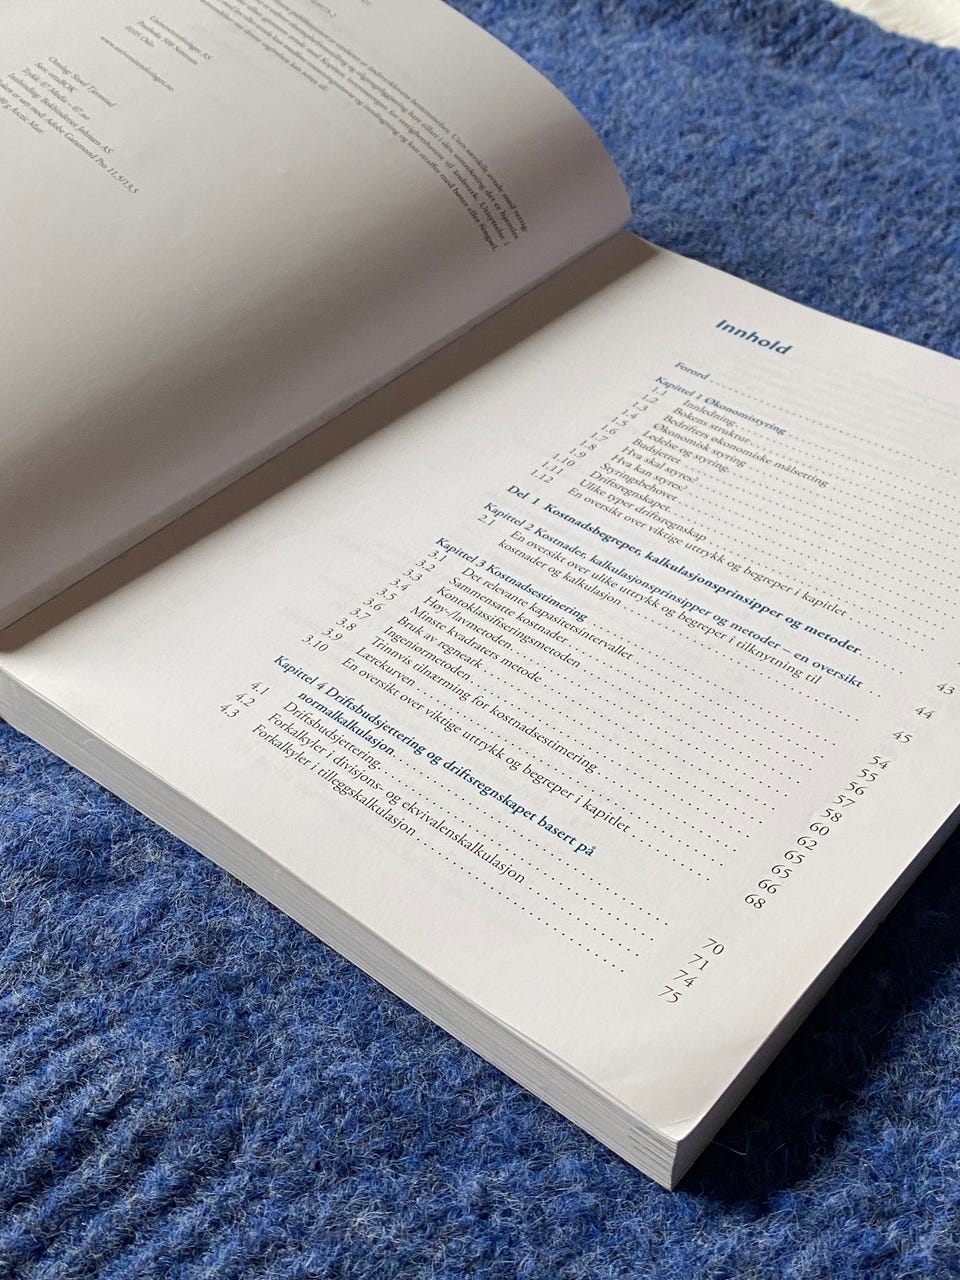 Universitetsforlaget AS
Postboks 508 Sentrum
0105 Oslo
www.universitetsforlaget.no
Omslag: Sissel Tjernstad
Sats: ottaBOK
Trykk: 07 Media – 07.no
Innbinding: Bokbinderiet Johnsen AS
Boken er satt med: Adobe Garamond Pro 11,5/13,5
Arctic Matt
Innhold
Forord
Kapittel 1 Økonomistyring
1.1 Innledning
1.2 Bokens struktur
1.3 Bedrifters økonomiske målsetting
1.4 Økonomisk styring
1.5 Ledelse og styring
1.6 Budsjettet
1.7 Hva skal styres?
1.8 Hva kan styres?
1.9 Styringsbehovet
1.10 Driftsregnskapet
1.11 Ulike typer driftsregnskap
1.12 En oversikt over viktige uttrykk og begreper i kapitlet
Del 1 Kostnadsbegreper, kalkulasjonsprinsipper og metoder 43
Kapittel 2 Kostnader, kalkulasjonsprinsipper og metoder – en oversikt 44
2.1 En oversikt over ulike uttrykk og begreper i tilknytning til
kostnader og kalkulasjon 45
Kapittel 3 Kostnadsestimering 54
3.1 Det relevante kapasitetsintervallet 55
3.2 Sammensatte kostnader 56
3.3 Kontoklassifiseringsmetoden 57
3.4 Høy-/lavmetoden 58
3.5 Minste kvadraters metode 60
3.6 Bruk av regneark 62
3.7 Ingeniørmetoden 65
3.8 Trinnvis tilnærming for kostnadsestimering 65
3.9 Lærekurven 66
3.10 En oversikt over viktige uttrykk og begreper i kapitlet 68
Kapittel 4 Driftsbudsjettering og driftsregnskapet basert på
normalkalkulasjon 70
4.1 Driftsbudsjettering 71
4.2 Forkalkyler i divisjons- og ekvivalenskalkulasjon 74
4.3 Forkalkyler i tilleggskalkulasjon 75